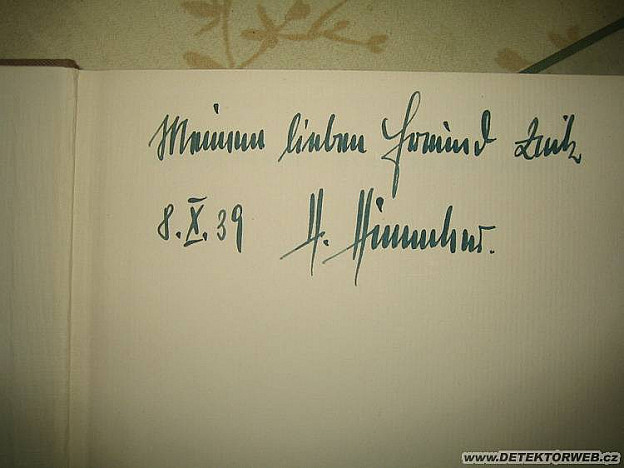 Meinem lieben Freund
8.X.39 H. Himmler.
www.DETEKTORWEB.cz